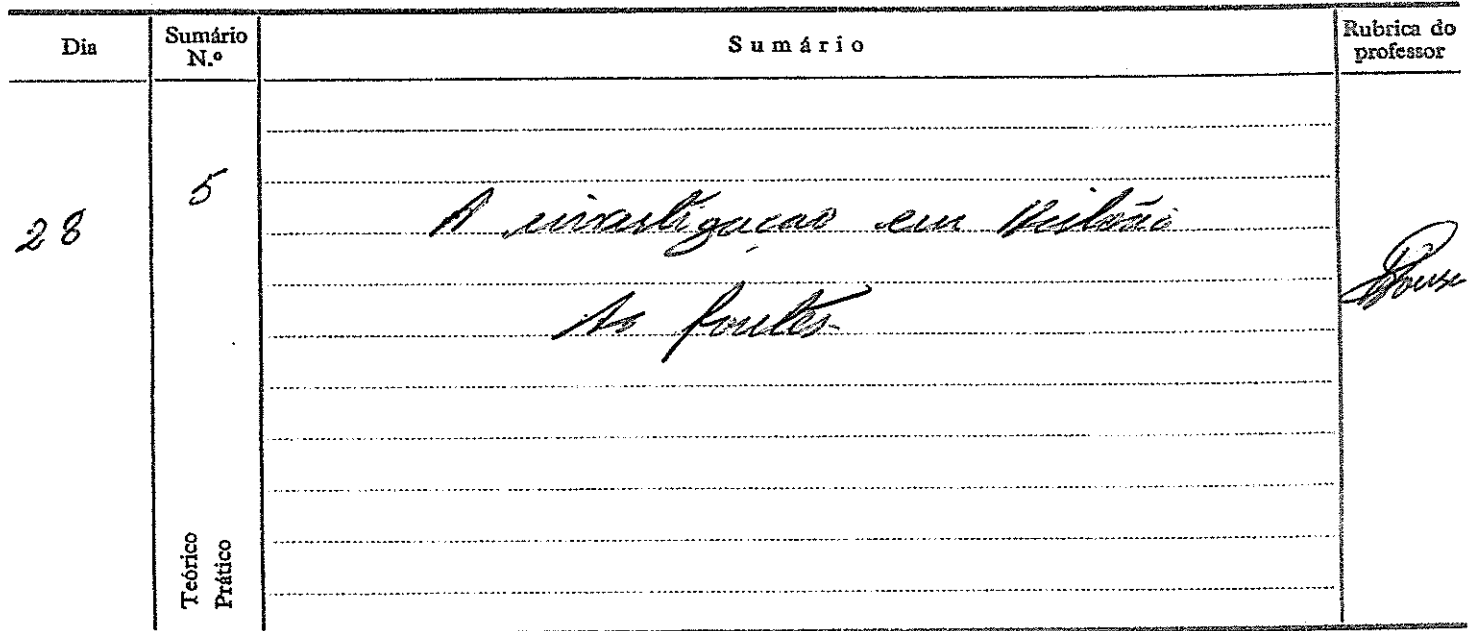 Dia
Sumário N.º
Sumário
Rubrica do professor
28
5
A investigação em História
As fontes
Teórico
Prático